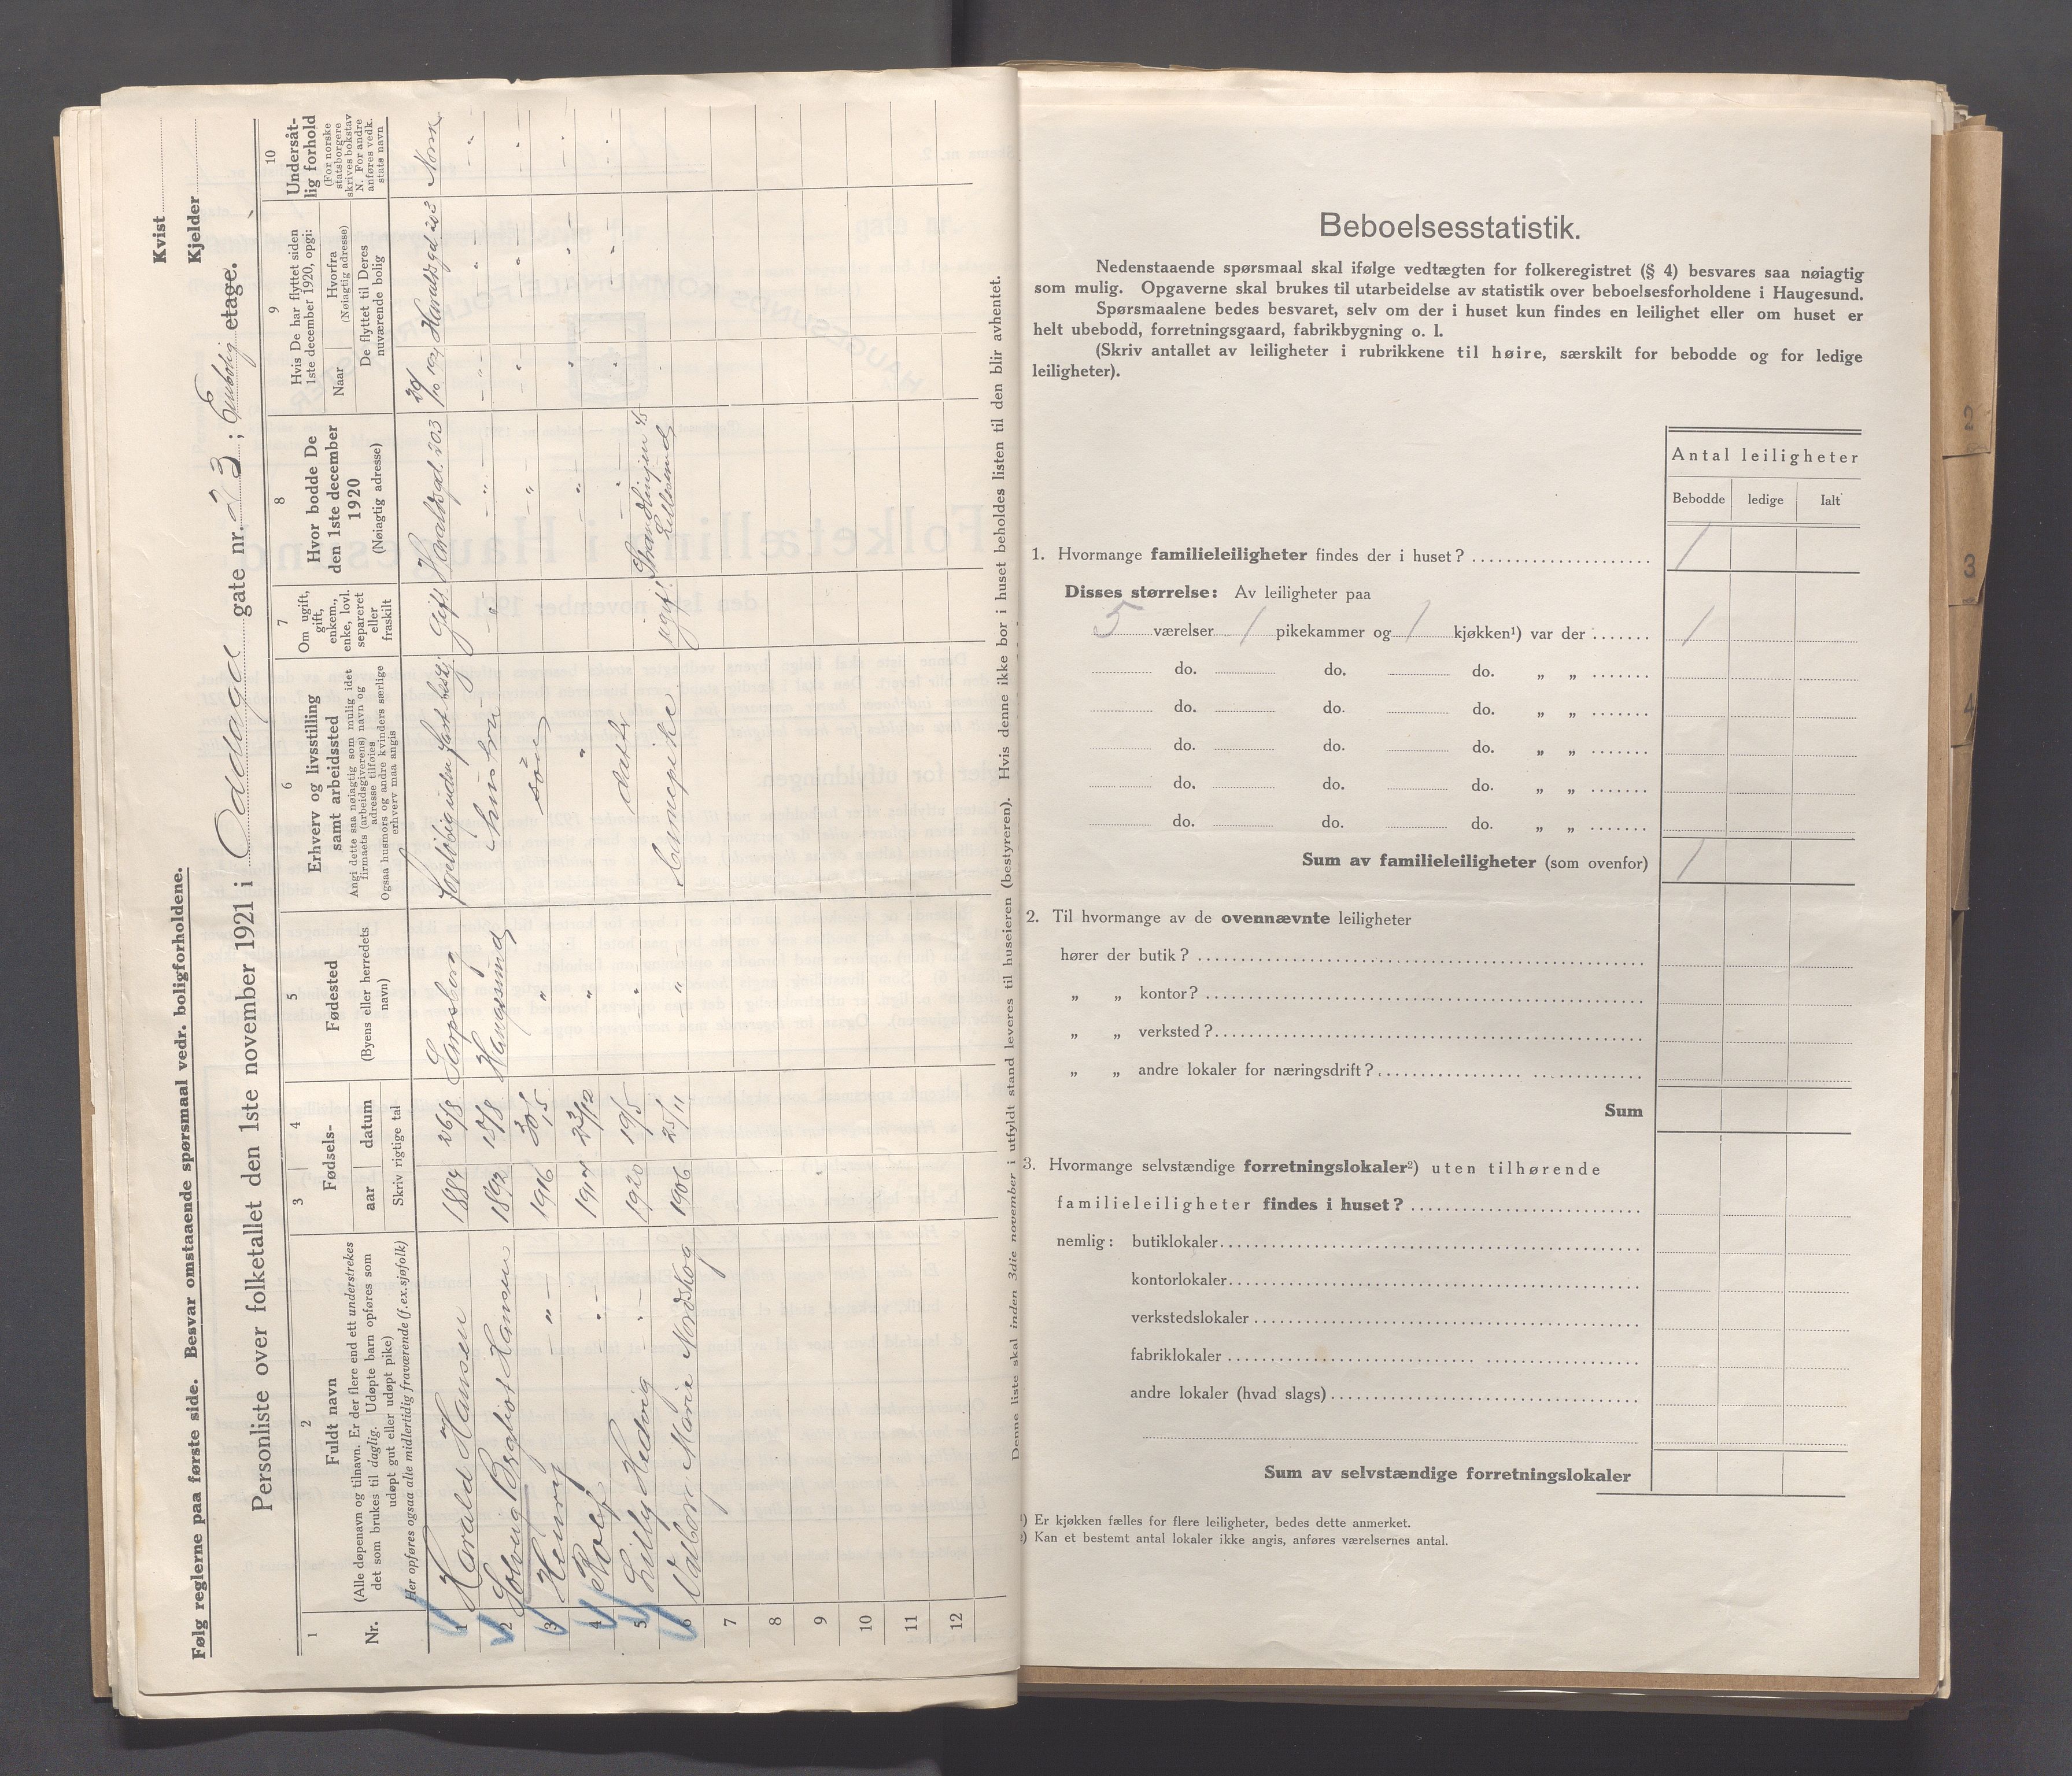 Følg reglerne paa første side. Besvar omstaaende spørsmaal vedr. boligforholdene.
Kvist
Kjelder
Personliste over folketallet den 1ste november 1921 i Oddagd gate nr. 23; Enebolig etage.
1
Nr.
2
Fuldt navn
(Alle døpenavn og tilnavn. Er der flere end ett understrekes
det som brukes til daglig. Udøpte barn opføres som
udøpt gut eller udøpt pike)
Her opføres ogsaa alle midlertidig fraværende (f.ex.sjøfolk)
3 4
Fødsels-
aar datum
Skriv rigtige tal
5
Fødested
(Byens eller herredets
navn)
6
Erhverv og livsstilling
samt arbeidssted
Angi dette saa nøiagtig som mulig idet
firmaets (arbeidsgiverens) navn og
adresse tilføies
Ogsaa husmors og andre kvinders særlige
erhverv maa angis
7
Om ugift,
gift,
enkem.,
enke, lovl.
separeret
eller
fraskilt
8
Hvor bodde De
den 1ste december
1920
(Nøiagtig adresse)
9
Hvis De har flyttet siden
1ste december 1920, opgi:
Naar
Hvorfra
(Nøiagtig adresse)
De flyttet til Deres
nuværende bolig
10
Undersåt-
lig forhold
(For norske
statsborgere
skrives bokstav
N. For andre
anføres vedk.
stats navn
1 Harald Hansen 1884 26/8 Sarpsborg Foreløbig uden fast beskj. Gift Haraldsgd. 203 Haraldsgd. 203 Norsk
2 Solveig Bergliot Hansen 1892 15/8 Haugesund hustru " - " - - " - - " - - " -
3 Henry - " - 1916 30/5 " søn - " - - " - - " - - " -
4 Rolf - " - 23/12 " " - " - " " - " -
5 Lilly Hedvig - " - 1920 19/5 - " - datter - " - " " - " -
6 Valborg Marie Nordskog 1906 25/11 - " - barnepike ugift Strandlinjen 45
Lillesund
7
8
9
10
11
12
Denne liste skal inden 3die november i utfyldt stand leveres til huseieren (bestyreren). Hvis denne ikke bor i huset beholdes listen til den blir avhentet.
Beboelsesstatistik.
Nedenstaaende spørsmaal skal ifølge vedtægten for folkeregistret (§ 4) besvares saa nøiagtig
som mulig. Opgaverne skal brukes til utarbeidelse av statistik over beboelsesforholdene i Haugesund.
Spørsmaalene bedes besvaret, selv om der i huset kun findes en leilighet eller om huset er
helt ubebodd, forretningsgaard, fabrikbygning o. l.
(Skriv antallet av leiligheter i rubrikkene til høire, særskilt for bebodde og for ledige
leiligheter).
Antal leiligheter
Bebodde ledige Ialt
1. Hvormange familieleiligheter findes der i huset? 1
Disses størrelse: Av leiligheter paa
5 værelser 1 pikekammer og 1 kjøkken¹) var der 1
do. do. do. „ „
do. do. do. „ „
do. do. do. „ „
do. do. do. „ „
do. do. do. „ „
Sum av familieleiligheter (som ovenfor) 1
2. Til hvormange av de ovennævnte leiligheter
hører der butik?
„ „ kontor?
„ „ verksted?
„ „ andre lokaler for næringsdrift?
Sum
3. Hvormange selvstændige forretningslokaler²) uten tilhørende
familieleiligheter findes i huset?
nemlig: butiklokaler
kontorlokaler
verkstedslokaler
fabriklokaler
andre lokaler (hvad slags)
Sum av selvstændige forretningslokaler
¹) Er kjøkken fælles for flere leiligheter, bedes dette anmerket.
²) Kan et bestemt antal lokaler ikke angis, anføres værelsernes antal.
2
3
4